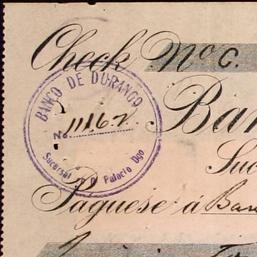 Check No C.
BANCO DE DURANGO
No. 11162
Sucursal
Palacio Dgo
Ban
Suc
Páguese á Ban